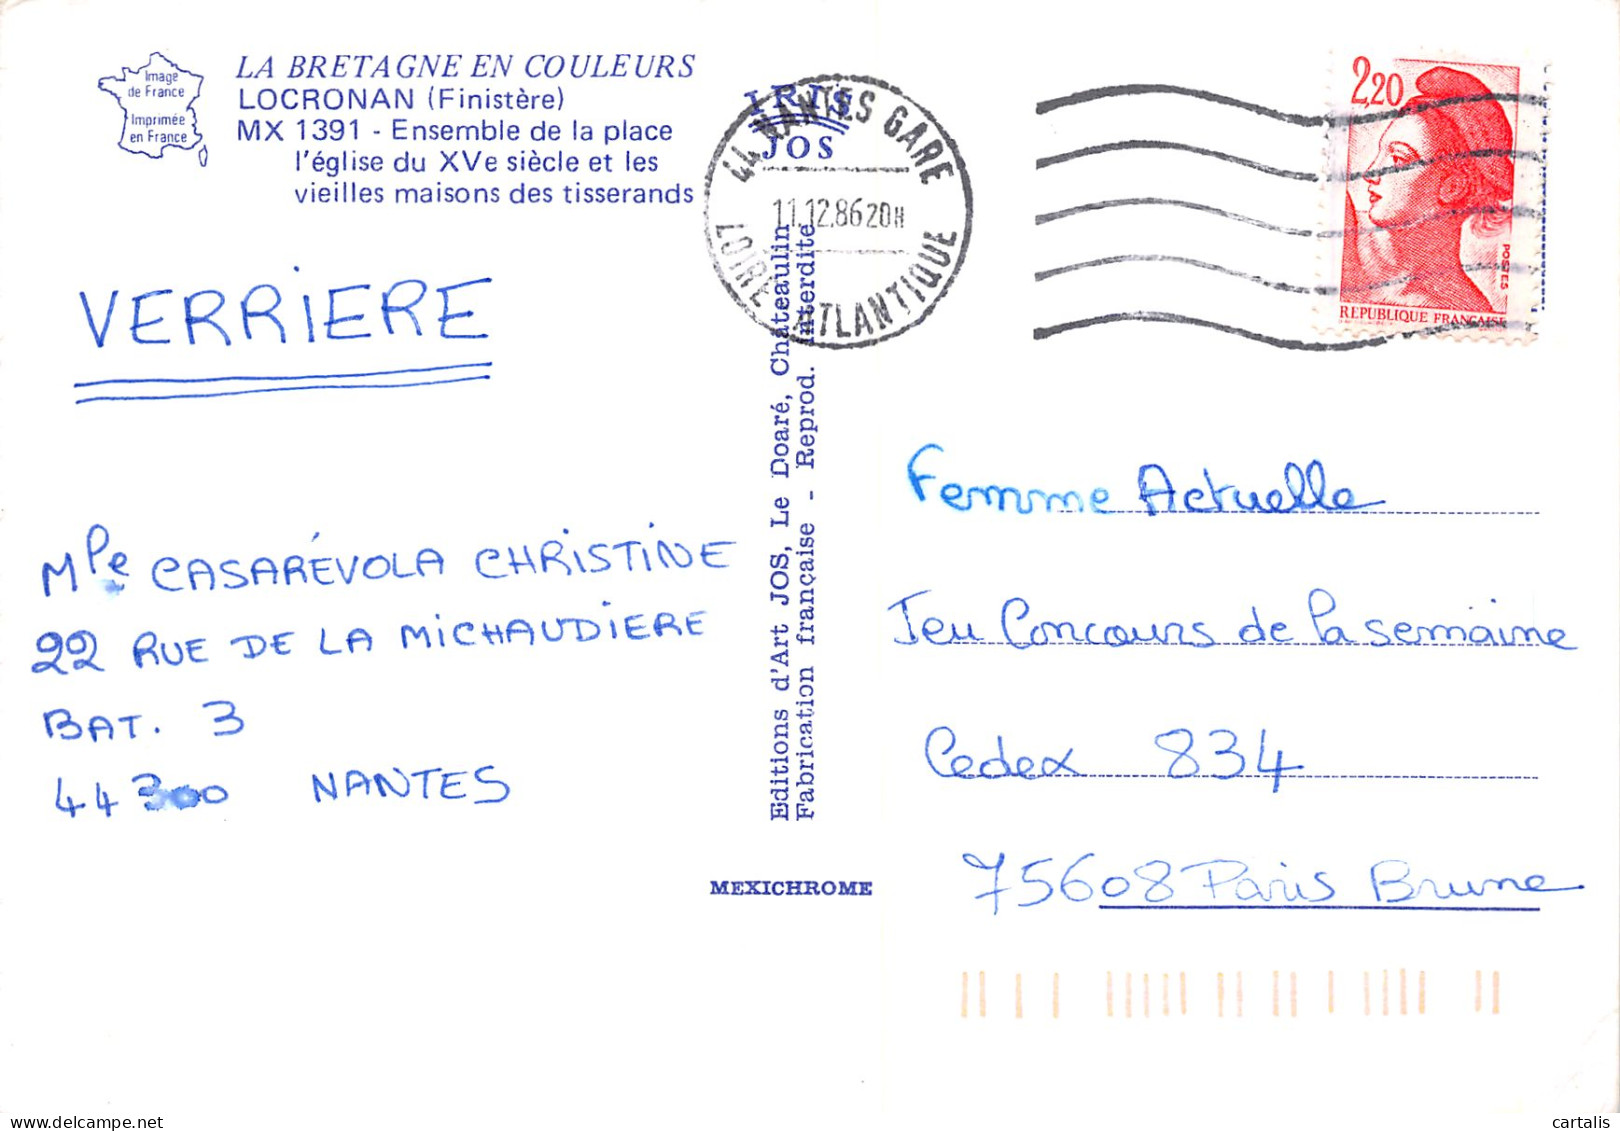 Image
de France
Imprimée
en France
LA BRETAGNE EN COULEURS
LOCRONAN (Finistère)
MX 1391 - Ensemble de la place
l'église du XVe siècle et les
vieilles maisons des tisserands
VERRIERE
Mlle CASARÉVOLA CHRISTINE
22 RUE DE LA MICHAUDIERE
BAT. 3
44300 NANTES
IRIS
JOS
44 NANTES GARE
11.12.86 20H
LOIRE ATLANTIQUE
Editions d'Art JOS, Le Doaré, Châteaulin
Fabrication française - Reprod. interdite
MEXICHROME
2,20
POSTES
REPUBLIQUE FRANÇAISE
Femme Actuelle
Jeu Concours de la semaine
Cedex 834
75608 Paris Brune
cartalis